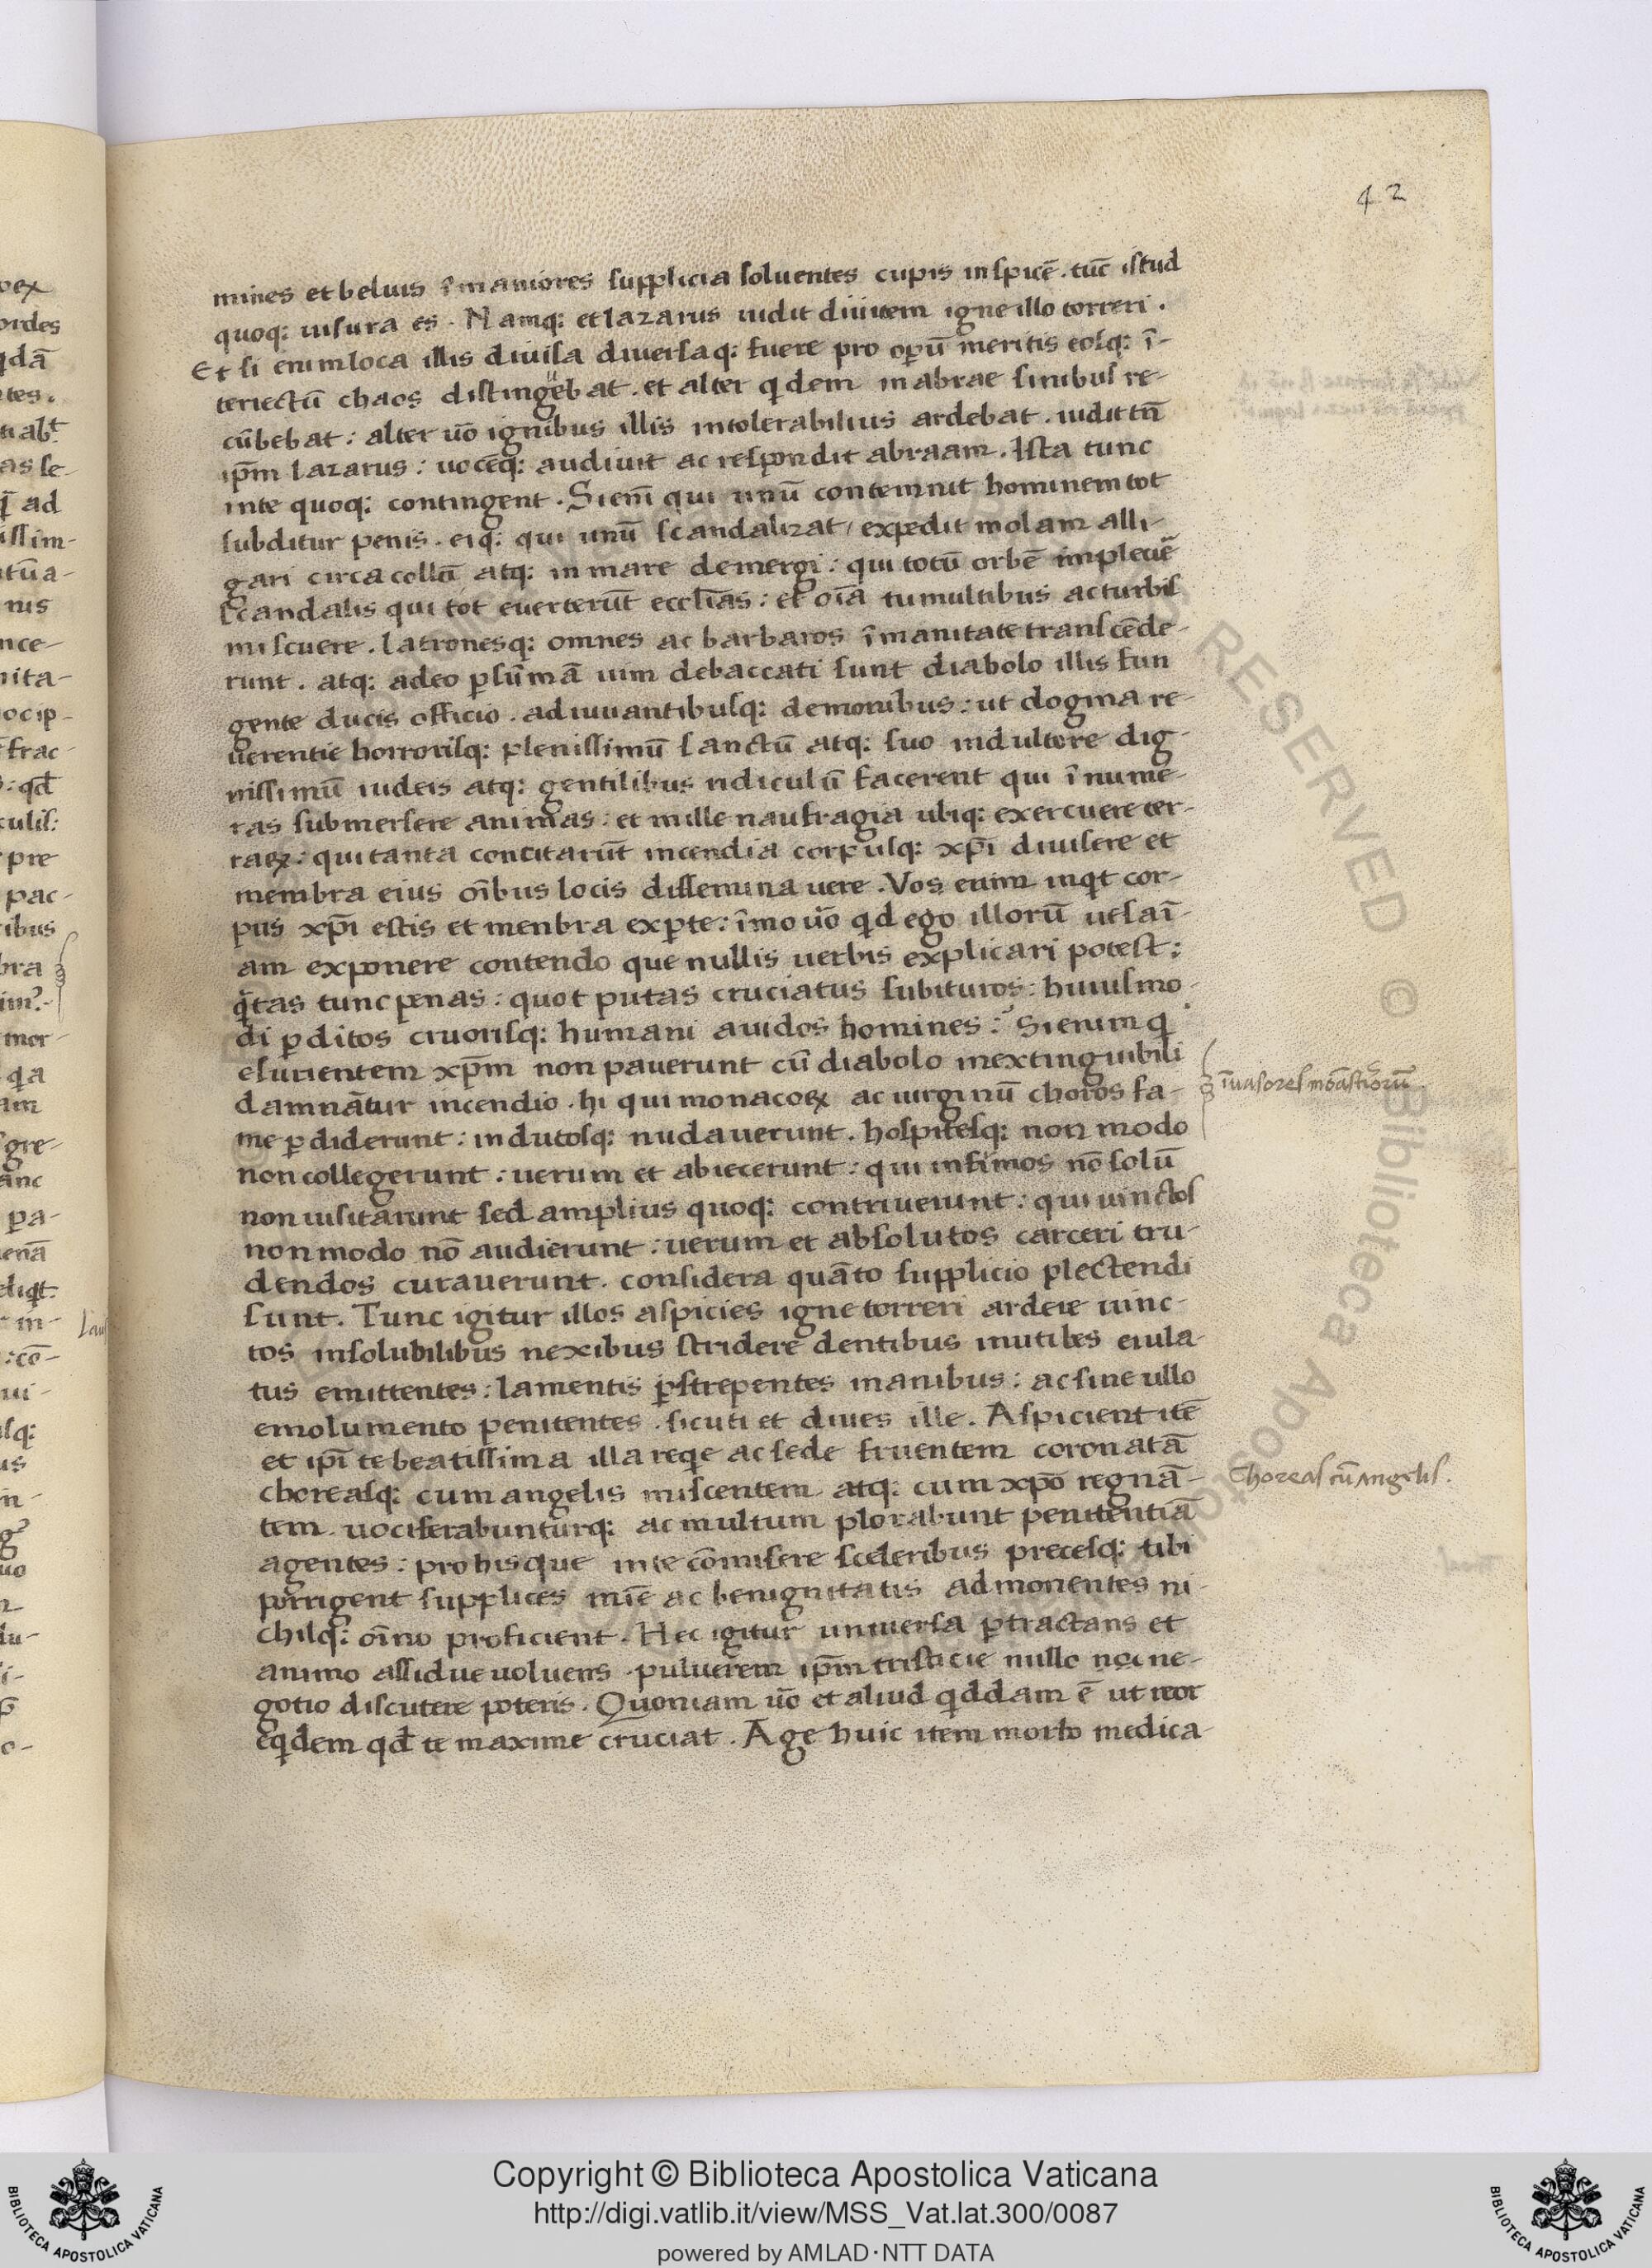 42
mines et beluis īmaniores ſupplicia ſoluentes cupis inſpicē. tūc iſtud
quoq: uiſura es. Namq: et lazarus uidit diuitem igne illo torreri.
Et ſi enim loca illis diuiſa diuerſaq: fuere pro oꝑū meritis eoſq: ī-
teriectū chaos diſtingebat. et alter qdem in abrae ſinibuſ re-
cūbebat: alter uō ignibus illis intolerabilius ardebat. uidit tn̄
ip̄m lazarus: uocēq: audiuit ac reſpondit abraam. Iſta tunc
in te quoq: contingent. Si eni̅ qui unū contemnit hominem tot
ſubditur penis. eiq: qui unū ſcandalizat/ expedit molam alli-
gari circa collū atq: in mare demergi: qui totū orbē impleuē
ſcandalis qui tot euerterūt eccl̄ias: et oīa tumultibus ac turbiſ
miſcuere. latroneſq: omnes ac barbaros īmanitate tranſcēde-
runt. atq: adeo ꝑ ſūmā uim debaccati ſunt diabolo illis fun
gente ducis officio. adiuuantibuſq: demonibus: ut dogma re-
uerentie horroriſq: pleniſſimū ſanctū atq: ſuo indultore dig-
niſſimū iudeis atq: gentilibus ridiculū facerent qui īnume-
ras ſubmerſere animas: et mille naufragia ubiq: exercuere ter-
raꝝ: qui tanta concitarūt incendia corpuſq: xp̄i diuiſere et
membra eius oībus locis diſſeminauere. Vos enim inqt cor-
pus xp̄i eſtis et menbra ex ꝑte: īmo uō qd ego illorū ueſaī-
am exponere contendo que nullis uerbis explicari poteſt:
q̄tas tunc penas: quot putas cruciatus ſubituros: huiuſmo-
di ꝑditos cruoriſq: humani auidos homines: Si enim q
eſurientem xp̄m non pauerunt cū diabolo inextinguibili
damnātur incendio. hi qui monacoꝝ ac uirginū choros fa-
me ꝑdiderunt: indutoſq: nudauerunt. hoſpiteſq: non modo
non collegerunt: uerum et abiecerunt: qui infimos nō ſolū
non uiſitarunt ſed amplius quoq: contriuerunt: qui uinctoſ
non modo nō audierunt: uerum et abſolutos carceri tru-
dendos curauerunt. conſidera quāto ſupplicio plectendi
ſunt. Tunc igitur illos aſpicies igne torreri ardere uinc-
tos inſolubilibus nexibus ſtridere dentibus inutiles eiula-
tus emittentes: lamentis ꝑſtrepentes manibus: ac ſine ullo
emolumento penitentes. ſicuti et diues ille. Aſpicient itē
et ip̄i te beatiſſima illa reqe ac ſede fruentem coronatā
choreaſq: cum angelis miſcentem atq: cum xp̄o regnā-
tem. uociferabunturq: ac multum plorabunt penitentiā
agentes: pro his que in te cōmiſere ſceleribus preceſq: tibi
porrigent ſupplices mīe ac benignitatis admonentes ni-
chilq: oīno proficient. Hec igitur uniuerſa ꝑtractans et
animo aſſidue uoluens. puluerem ip̄m triſticie nullo ne-
gotio diſcutere poteris. Quoniam uō et aliud qddam ē ut reor
eqdem qd̄ te maxime cruciat. Age huic item morbo medica-
īuaſoreſ monaſtiorū
Choreaſ cū Angeliſ.
Copyright © Biblioteca Apostolica Vaticana
http://digi.vatlib.it/view/MSS_Vat.lat.300/0087
powered by AMLAD·NTT DATA
BIBLIOTECA APOSTOLICA VATICANA
BIBLIOTECA APOSTOLICA VATICANA